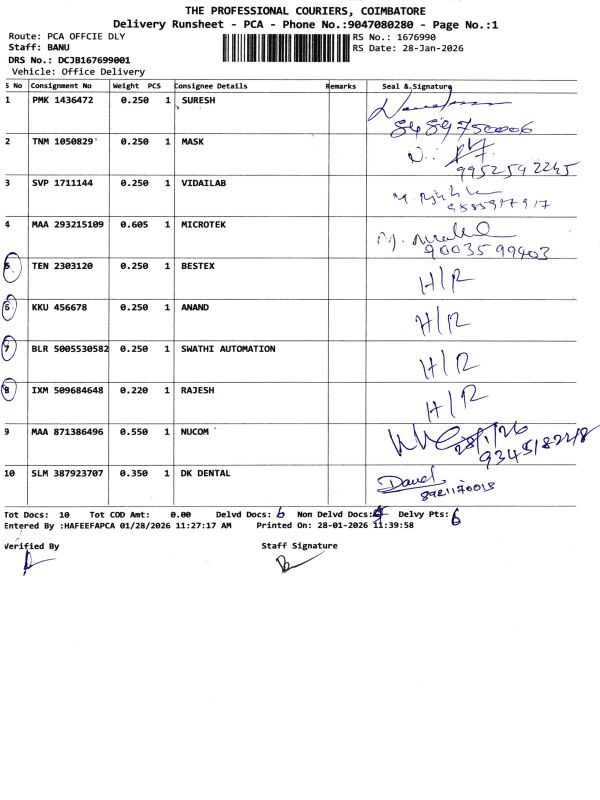 THE PROFESSIONAL COURIERS, COIMBATORE
Delivery Runsheet - PCA - Phone No.:9047080280 - Page No.:1
Route: PCA OFFCIE DLY
RS No.: 1676990
Staff: BANU
RS Date: 28-Jan-2026
DRS No.: DCJB167699001
Vehicle: Office Delivery
S No Consignment No Weight PCS Consignee Details Remarks Seal & Signature
1 PMK 1436472 0.250 1 SURESH
8489750006
2 TNM 1050829 0.250 1 MASK
9952592245
3 SVP 1711144 0.250 1 VIDAILAB
4 MAA 293215109 0.605 1 MICROTEK
9003599403
5 TEN 2303120 0.250 1 BESTEX H/R
6 KKU 456678 0.250 1 ANAND H/R
7 BLR 5005530582 0.250 1 SWATHI AUTOMATION H/R
8 IXM 509684648 0.220 1 RAJESH H/R
9 MAA 871386496 0.550 1 NUCOM 28/1/26
10 SLM 387923707 0.350 1 DK DENTAL
Tot Docs: 10 Tot COD Amt: 0.00 Delvd Docs: 6 Non Delvd Docs: Delvy Pts: 6
Entered By :HAFEEFAPCA 01/28/2026 11:27:17 AM Printed On: 28-01-2026 11:39:58
Verified By Staff Signature